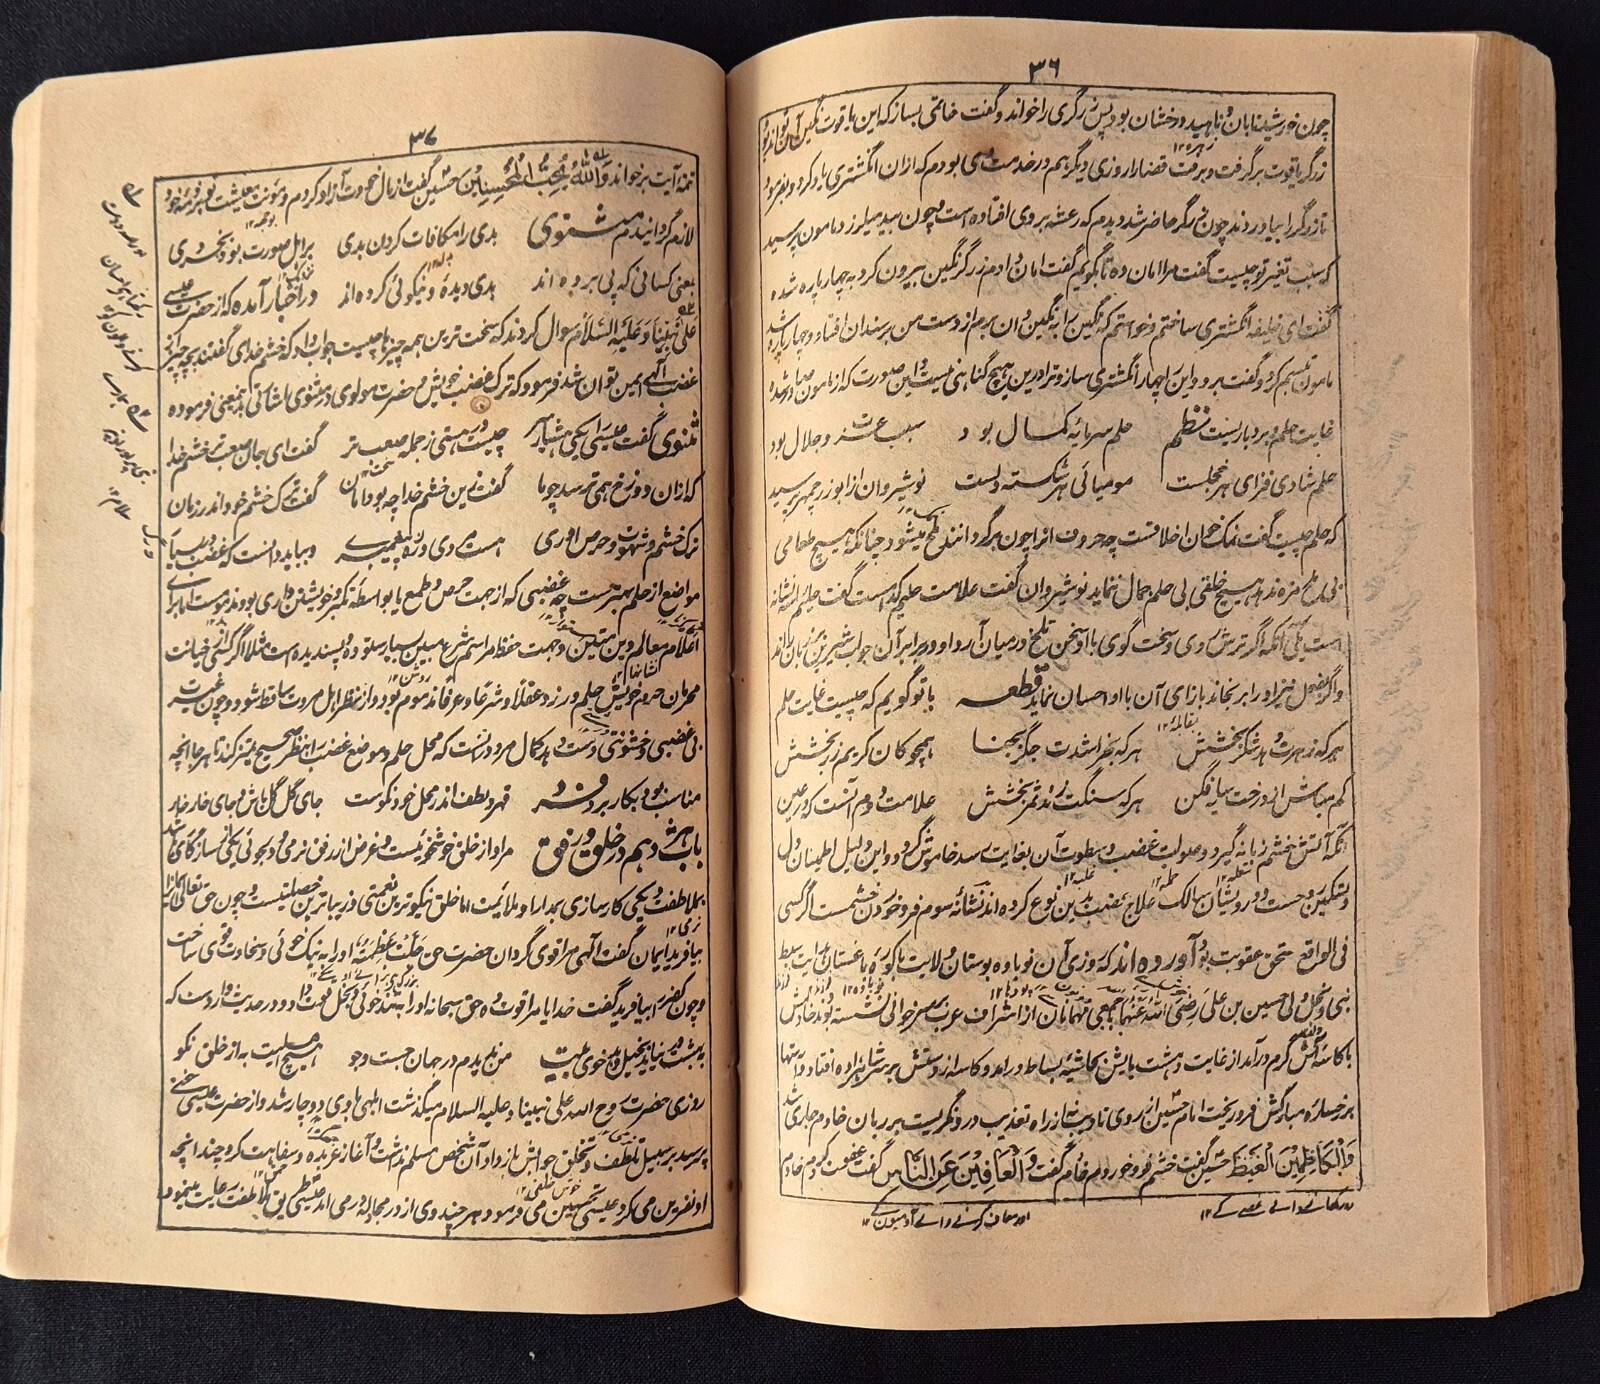 ۳۶
چون خورشید تابان و ناهید درخشان بود پس زرگری را خواند و گفت خاتمی بساز که این یاقوت نگین آن تواند بود
زرگر یاقوت برگرفت و برفت قضارا روزی دیگر هم در خدمت وی بودم که ازان انگشتری یاد کرد و بفرمود
تا زرگر را بیاوردند چون زرگر حاضر شد دیدم که رعشه بر وی افتاده است و چون بید میلرزد مامون پرسید
که سبب تغیر تو چیست گفت مرا امان ده تا بگویم گفت امان دادم زرگر نگین بیرون کرد به چهار پاره شده
گفت ای خلیفه انگشتری ساختم و خواستم که نگین را به نگین دان برم از دست من بر سندان افتاد و چهار پاره شد
مامون تبسم کرد و گفت برو و این را چهار انگشتری ساز و ترا درین هیچ گناهی نیست و این صورت که از مامون صادر شده
غایت حلم و بردباریست نظم حلم سرمایهٔ کمال بود سبب عزت و جلال بود
حلم شادی فزای هر خجلست مومیائی هر شکسته دلست نوشیروان از ابوزرجمهر پرسید
که حلم چیست گفت نمک خوان اخلاقست چه حروف انرا چون برگردانند ملح میشود چنانکه هیچ طعامی
بی ملح مزه ندهد هیچ خلقی بی حلم جمال ننماید نوشیروان گفت علامت حلیم کدامست گفت حلیم را سه نشانه
است یکی آنکه اگر ترش روی و سخت گوی با او سخن تلخ در میان آرد او در برابر آن جواب شیرین بر زبان راند
و اگر بفعل نیز او را برنجاند بازای آن با او احسان نماید قطعه با تو گویم که چیست غایت حلم
هر که زهرت دهد شکر بخشش هر که بخراشدت جگر بجفا همچو کان کریم زر بخشش
کم مباش از درخت سایه فگن هر که سنگت زند ثمر بخشش علامت دوم آنست که در عین
آنکه آتش خشم زبانه گیرد و صولت غضب و سطوت آن بغایت رسد خاموش گردد و این دلیل اطمینان دل
و تسکین روحست و درویشان سالک علاج غضب بدین نوع کرده اند نشانهٔ سوم فرو خوردن خشمست اگر کسی
فی الواقع مستحق عقوبت بود آورده اند که روزی آن نوباوه بوستان ولایت باکورهٔ باغستان هدایت سبط
نبی و نجل ولی حسین بن علی رضی الله عنهما با جمعی مهمانان از اشراف عرب بر سر خوانی نشسته بودند خادمش
با کاسهٔ آش گرم درآمد از غایت دهشت پایش بحاشیهٔ بساط درآمد و کاسه از دستش بر سر شاهزاده افتاد و آشها
بر رخسارهٔ مبارکش فرو ریخت امام حسین از روی تادیب نه از راه تعذیب درو نگریست بر زبان خادم جاری شد
وَالْكَاظِمِينَ الْغَيْظَ حسین گفت خشم فرو خوردم خادم گفت وَالْعَافِينَ عَنِ النَّاسِ گفت عفوت کردم خادم
اور معاف کرنے والے آدمیون کے ۱۲
۳۷
تتمه آیت بر خواند وَاللّٰهُ يُحِبُّ الْمُحْسِنِينَ حسین گفت از مال خودت آزاد کردم و مؤنت معیشت تو بر ذمهٔ خود
لازم گردانیدم مثنوی بدی را مکافات کردن بدی بر اهل صورت بود بخردی
بمعنی کسانی که پی برده اند بدی دیده و نیکوئی کرده اند در اخبار آمده که از حضرت عیسی
علی نبینا و علیه السلام سوال کردند که سخت ترین همه چیزها چیست جواب داد که خشم خدای گفتند بچه چیز از
غضب الهی ایمن توان شد فرمود که ترک غضب خویش و حضرت مولوی در مثنوی اشاتی بدینمعنی فرموده
مثنوی گفت عیسی را یکی هشیار سر چیست در هستی ز جمله صعب تر گفت ای جان صعب تر خشم خدا
که ازان دوزخ همی ترسد چو ما گفت زین خشم خدا چه بود امان گفت ترک خشم خود اندر زمان
ترک خشم و شهوت و حرص آوری هست مردی و ره پیغمبری و بباید دانست که غضب در بسیاری
مواضع از حلم بهترست چه غضبی که از جهت حرص و طمع یا بواسطه تکبر و خویشتن داری بود مذمومست اما برای
اعلام معالم دین متین و جهت حفظ مراسم شرع مبین بسیار ستوده و پسندیده است مثلا اگر کسی خیانت
محرمان حرم خویش حلم ورزد عقلا و شرعا و عرفا مذموم بود و از نظر اهل مروت ساقط شود و چون غیرت
بی غضبی و خشونتی نادرست و اهل کمال مرد دانست که محل حلم و موضع غضب را بنظر صحیح متمیز کند تا هر جا انچه
مناسب بود بکار برد فرد قهر و لطف اندر محل خود نکوست جای گل گل باش و جای خار خار
باب هژدهم در خلق و رفق مراد از خلق خوشخوئیست و غرض از رفق نرمی و دلجوئی یکی از سازگاری باشد
بملاطفت و یکی کارسازی بمدارا و ملائمت اما خلق نیکوترین نعمتی و زیباترین خصلتیست و چون حق تعالی ایمان را
بیافرید ایمان گفت الهی مرا قوی گردان حضرت حق جلت عظمته او را به نیک خوئی و سخاوت قوی ساخت
و چون کفر را بیافرید گفت خدایا مرا قوت ده حق سبحانه او را به بدخوئی و بخل قوت داد و در حدیث وارد است که
به بهشت در نیاید بخیل و بد خوی بیت من ندیدم در جهان جست و جو هیچ اهلیت به از خلق نکو
روزی حضرت روح الله علی نبینا و علیه السلام میگذشت ابلهی با وی دوچار شد و از حضرت عیسی سخنی
پرسید بر سبیل تلطف و تخلق جوابش باز داد و آن شخص مسلم نداشت و آغاز عربده و سفاهت کرد چندانچه
او نفرین می کرد عیسی تحسین می فرمود و هر چند وی از در مجادله می راند عیسی طریق ملاطفت رعایت مینمود